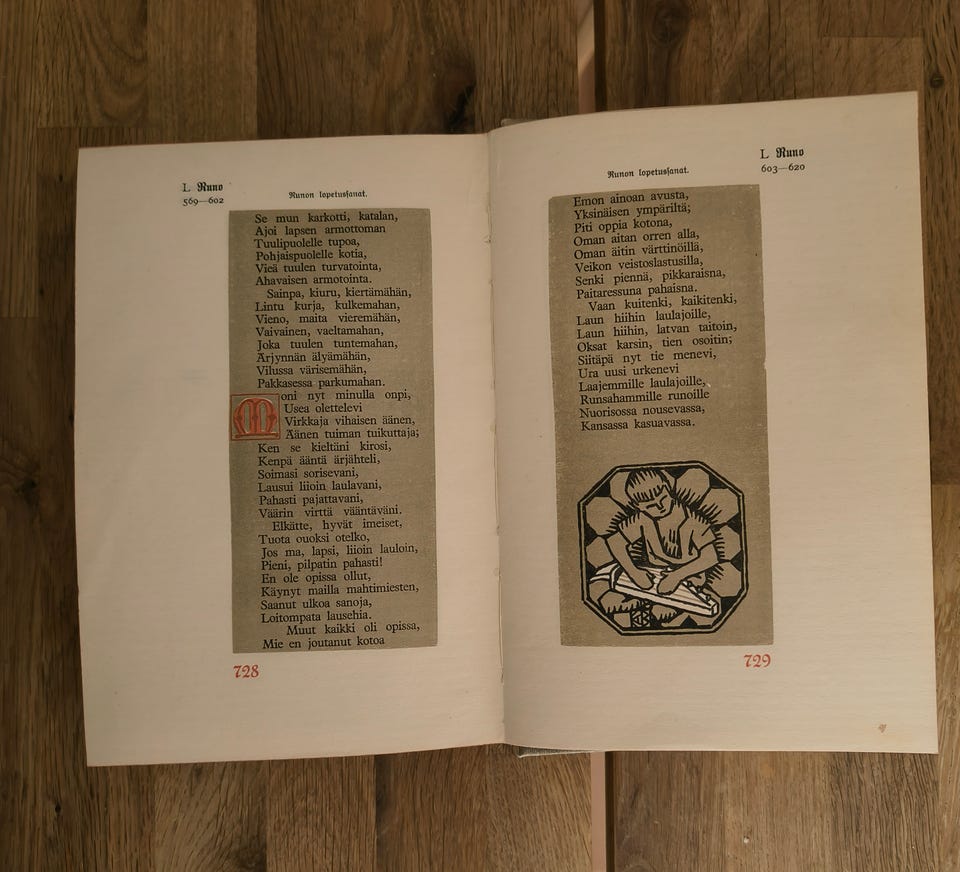 L Runo
569—602
Runon lopetussanat.
Se mun karkotti, katalan,
Ajoi lapsen armottoman
Tuulipuolelle tupoa,
Pohjaispuolelle kotia,
Vieä tuulen turvatointa,
Ahavaisen armotointa.
Sainpa, kiuru, kiertämähän,
Lintu kurja, kulkemahan,
Vieno, maita vieremähän,
Vaivainen, vaeltamahan,
Joka tuulen tuntemahan,
Ärjynnän älyämähän,
Vilussa värisemähän,
Pakkasessa parkumahan.
Moni nyt minulla onpi,
Usea olettelevi
Virkkaja vihaisen äänen,
Äänen tuiman tuikuttaja;
Ken se kieltäni kirosi,
Kenpä ääntä ärjähteli,
Soimasi sorisevani,
Lausui liioin laulavani,
Pahasti pajattavani,
Väärin virttä vääntäväni.
Elkätte, hyvät imeiset,
Tuota ouoksi otelko,
Jos ma, lapsi, liioin lauloin,
Pieni, pilpatin pahasti!
En ole opissa ollut,
Käynyt mailla mahtimiesten,
Saanut ulkoa sanoja,
Loitompata lausehia.
Muut kaikki oli opissa,
Mie en joutanut kotoa
728
L Runo
603—620
Runon lopetussanat.
Emon ainoan avusta,
Yksinäisen ympäriltä;
Piti oppia kotona,
Oman aitan orren alla,
Oman äitin värttinöillä,
Veikon veistoslastusilla,
Senki piennä, pikkaraisna,
Paitaressuna pahaisna.
Vaan kuitenki, kaikitenki,
Laun hiihin laulajoille,
Laun hiihin, latvan taitoin,
Oksat karsin, tien osoitin;
Siitäpä nyt tie menevi,
Ura uusi urkenevi
Laajemmille laulajoille,
Runsahammille runoille
Nuorisossa nousevassa,
Kansassa kasuavassa.
729